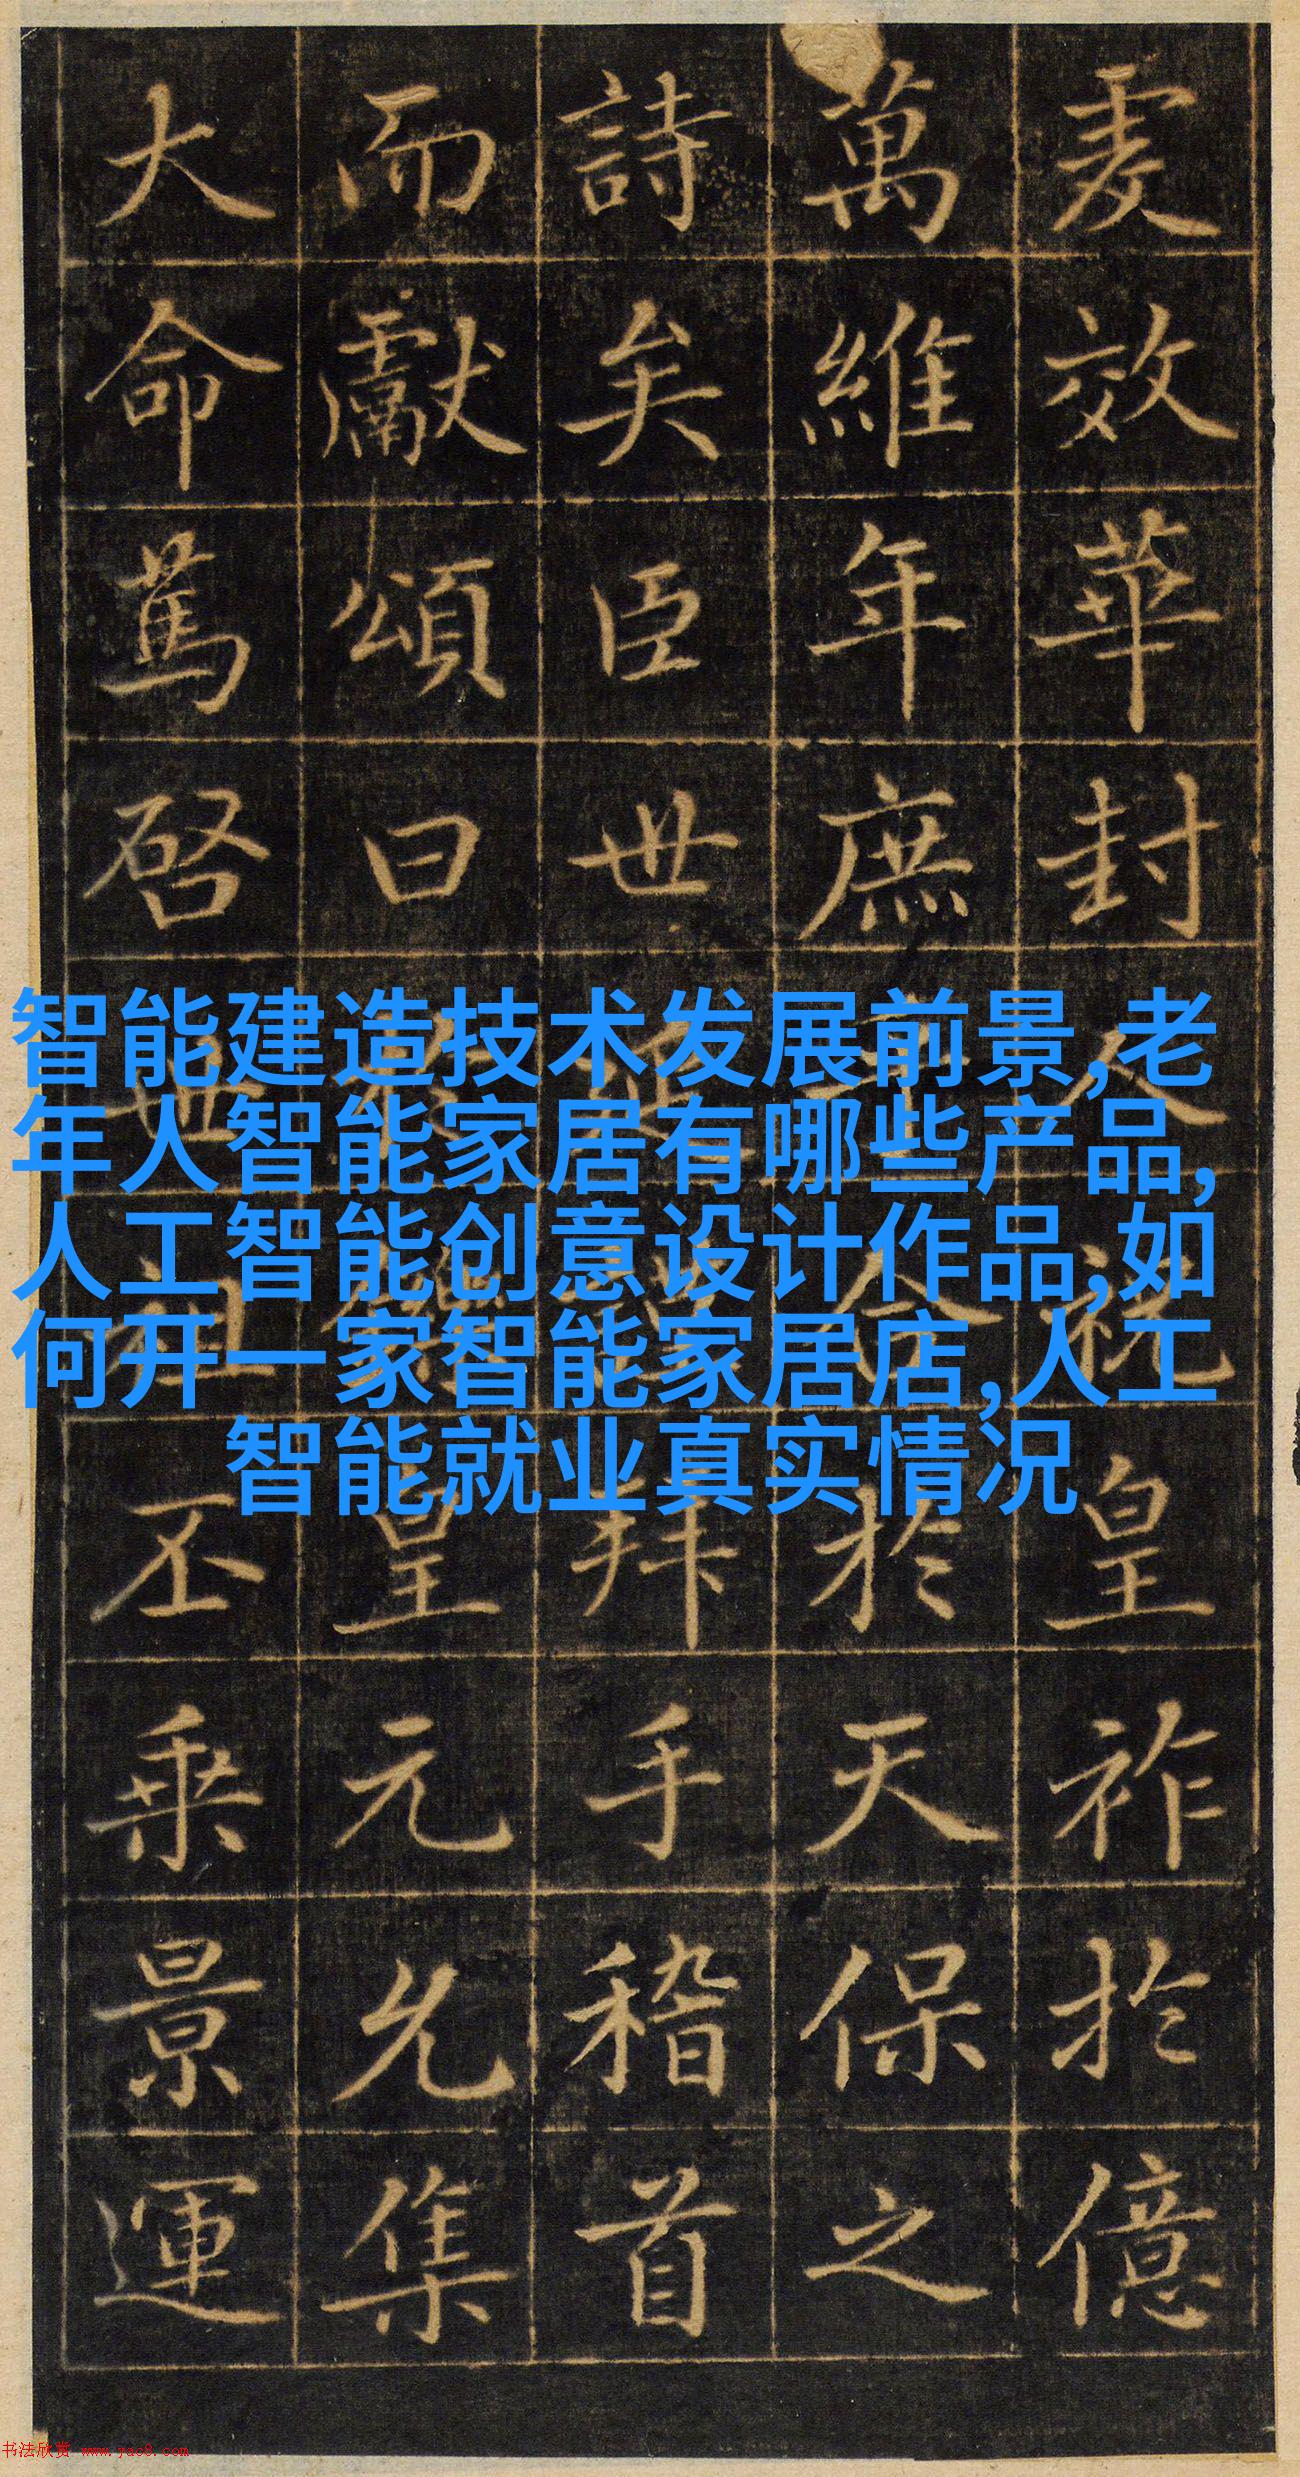 爰效華封人祝皇祚於億
萬維年庶於天保之
詩矣臣世拜手稽首
而獻頌曰皇元允集
大命篤啓祖丕乘景運
智能建造技术发展前景,老
年人智能家居有哪些产品,
人工智能创意设计作品,如
何开一家智能家居店,人工
智能就业真实情况
书法欣赏 www.yac8.com